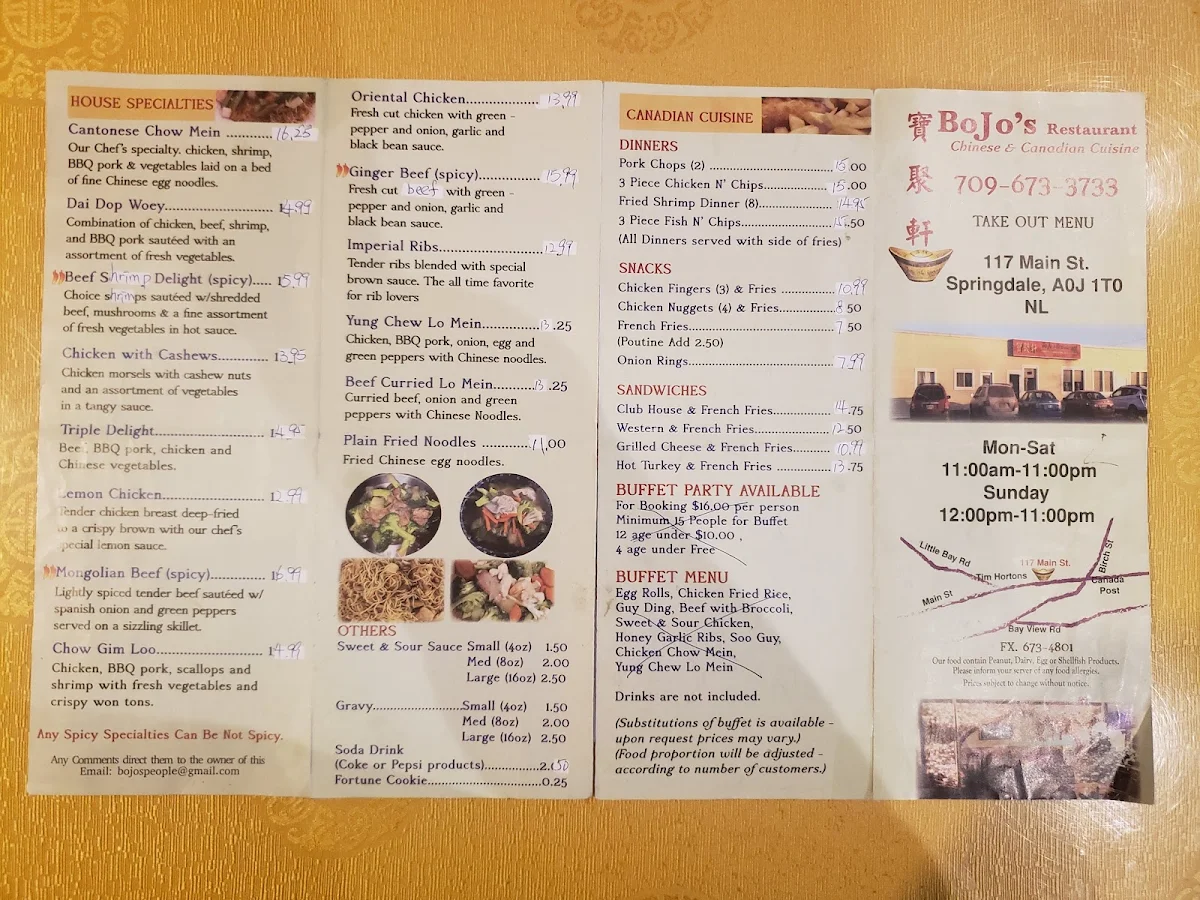 HOUSE SPECIALTIES
Cantonese Chow Mein ........... 16.25
Our Chef's specialty. chicken, shrimp,
BBQ pork & vegetables laid on a bed
of fine Chinese egg noodles.
Dai Dop Woey........................ 14.99
Combination of chicken, beef, shrimp,
and BBQ pork sautéed with an
assortment of fresh vegetables.
Beef Shrimp Delight (spicy)..... 15.99
Choice shrimps sautéed w/shredded
beef, mushrooms & a fine assortment
of fresh vegetables in hot sauce.
Chicken with Cashews............. 13.95
Chicken morsels with cashew nuts
and an assortment of vegetables
in a tangy sauce.
Triple Delight........................... 14.95
Beef, BBQ pork, chicken and
Chinese vegetables.
Lemon Chicken........................ 12.99
Tender chicken breast deep-fried
to a crispy brown with our chef's
special lemon sauce.
Mongolian Beef (spicy)............. 16.99
Lightly spiced tender beef sautéed w/
spanish onion and green peppers
served on a sizzling skillet.
Chow Gim Loo........................ 14.99
Chicken, BBQ pork, scallops and
shrimp with fresh vegetables and
crispy won tons.
Any Spicy Specialties Can Be Not Spicy.
Any Comments direct them to the owner of this
Email: bojospeople@gmail.com
Oriental Chicken.................. 13.99
Fresh cut chicken with green -
pepper and onion, garlic and
black bean sauce.
Ginger Beef (spicy)................ 15.99
Fresh cut beef with green -
pepper and onion, garlic and
black bean sauce.
Imperial Ribs......................... 12.99
Tender ribs blended with special
brown sauce. The all time favorite
for rib lovers
Yung Chew Lo Mein.............. 13.25
Chicken, BBQ pork, onion, egg and
green peppers with Chinese noodles.
Beef Curried Lo Mein............ 13.25
Curried beef, onion and green
peppers with Chinese Noodles.
Plain Fried Noodles .............. 11.00
Fried Chinese egg noodles.
OTHERS
Sweet & Sour Sauce Small (4oz) 1.50
Med (8oz) 2.00
Large (16oz) 2.50
Gravy........................Small (4oz) 1.50
Med (8oz) 2.00
Large (16oz) 2.50
Soda Drink
(Coke or Pepsi products)..................2.50
Fortune Cookie..................................0.25
CANADIAN CUISINE
DINNERS
Pork Chops (2) ............................ 15.00
3 Piece Chicken N' Chips............... 15.00
Fried Shrimp Dinner (8)................ 14.95
3 Piece Fish N' Chips.................... 15.50
(All Dinners served with side of fries)
SNACKS
Chicken Fingers (3) & Fries ............. 10.99
Chicken Nuggets (4) & Fries............ 8.50
French Fries.................................. 7.50
(Poutine Add 2.50)
Onion Rings.................................. 7.99
SANDWICHES
Club House & French Fries.............. 14.75
Western & French Fries................... 12.50
Grilled Cheese & French Fries.......... 10.99
Hot Turkey & French Fries .............. 13.75
BUFFET PARTY AVAILABLE
For Booking $16.00 per person
Minimum 15 People for Buffet
12 age under $10.00 ,
4 age under Free
BUFFET MENU
Egg Rolls, Chicken Fried Rice,
Guy Ding, Beef with Broccoli,
Sweet & Sour Chicken,
Honey Garlic Ribs, Soo Guy,
Chicken Chow Mein,
Yung Chew Lo Mein
Drinks are not included.
(Substitutions of buffet is available -
upon request prices may vary.)
(Food proportion will be adjusted -
according to number of customers.)
寶聚軒
BoJo's Restaurant
Chinese & Canadian Cuisine
709-673-3733
TAKE OUT MENU
117 Main St.
Springdale, A0J 1T0
NL
Mon-Sat
11:00am-11:00pm
Sunday
12:00pm-11:00pm
Little Bay Rd
Tim Hortons
117 Main St.
Birch St
Main St
Canada
Post
Bay View Rd
FX. 673-4801
Our food contain Peanut, Dairy, Egg or Shellfish Products.
Please inform your server of any food allergies.
Prices subject to change without notice.